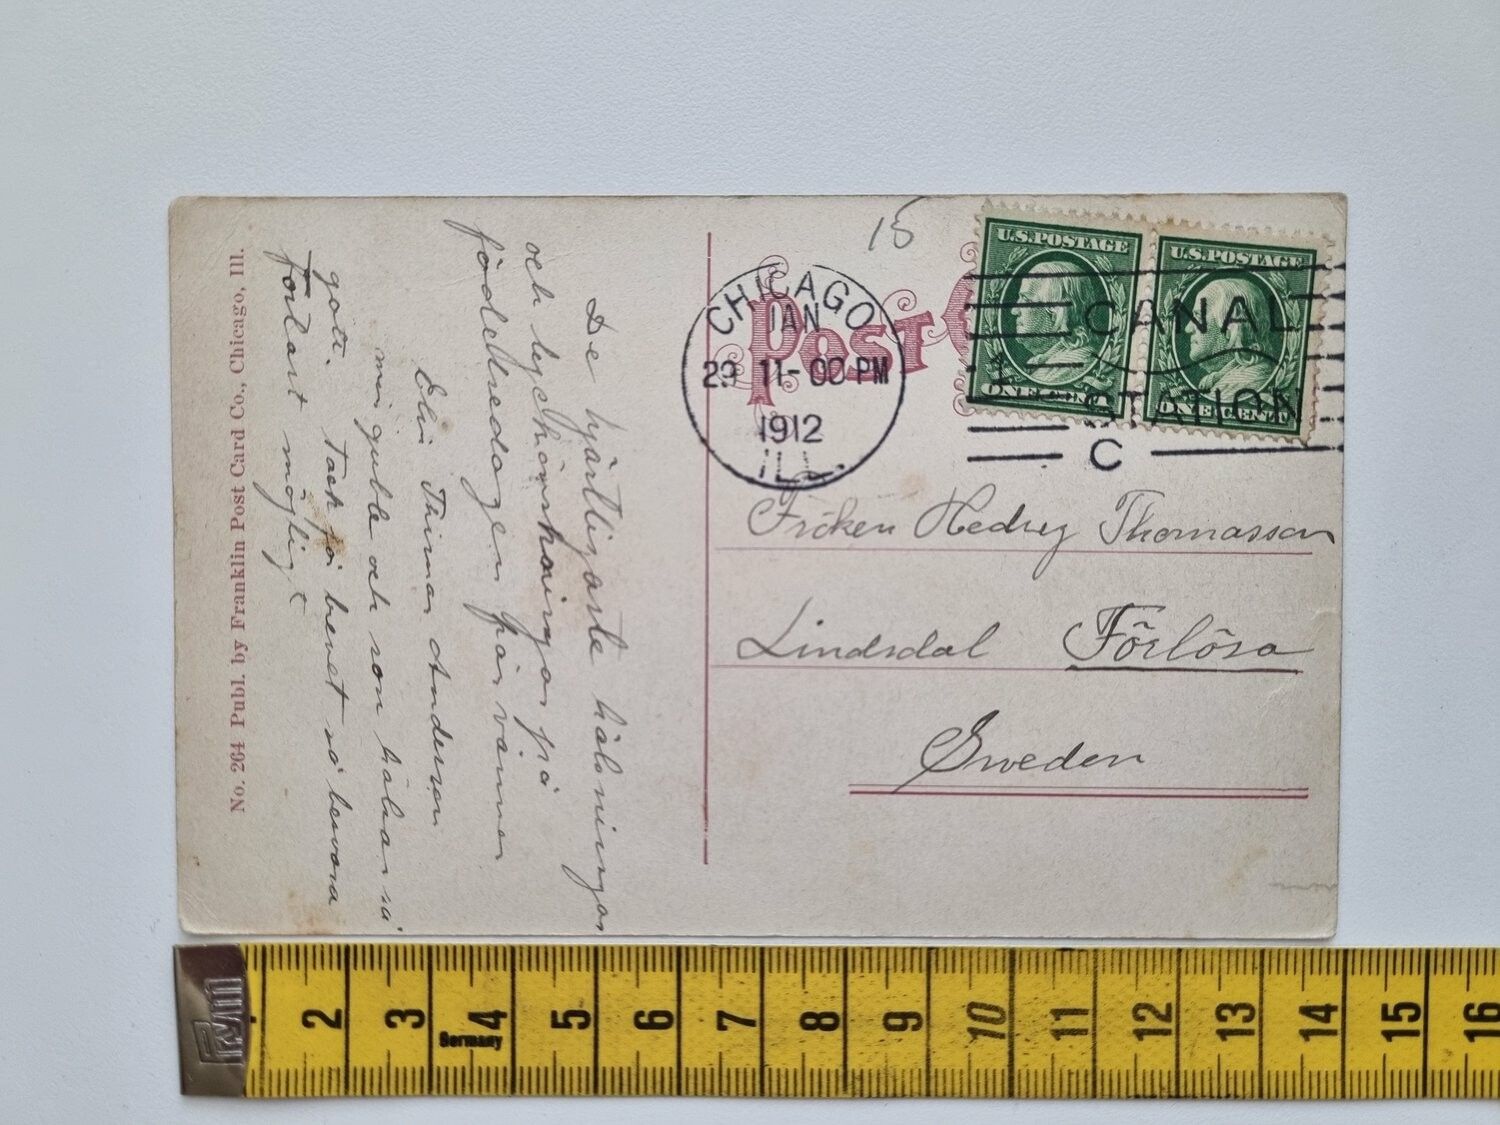 No. 264 Publ. by Franklin Post Card Co., Chicago, Ill.
De hjärtligaste hälsningar
och lyckönskningar på
födelsedagen från vännen
Thimor Anderson
min gubbe och son hälsar så
gott. Tack på brevet så besvara
fortast möjligt
15
POST C
U.S. POSTAGE
ONE CENT
U.S. POSTAGE
ONE CENT
CHICAGO
JAN
29 11-00 PM
1912
ILL.
CANAL
STATION
C
Fröken Hedvig Thomasson
Lindsdal Förlösa
Sweden
2 3 4 5 6 7 8 9 10 11 12 13 14 15 16
Germany